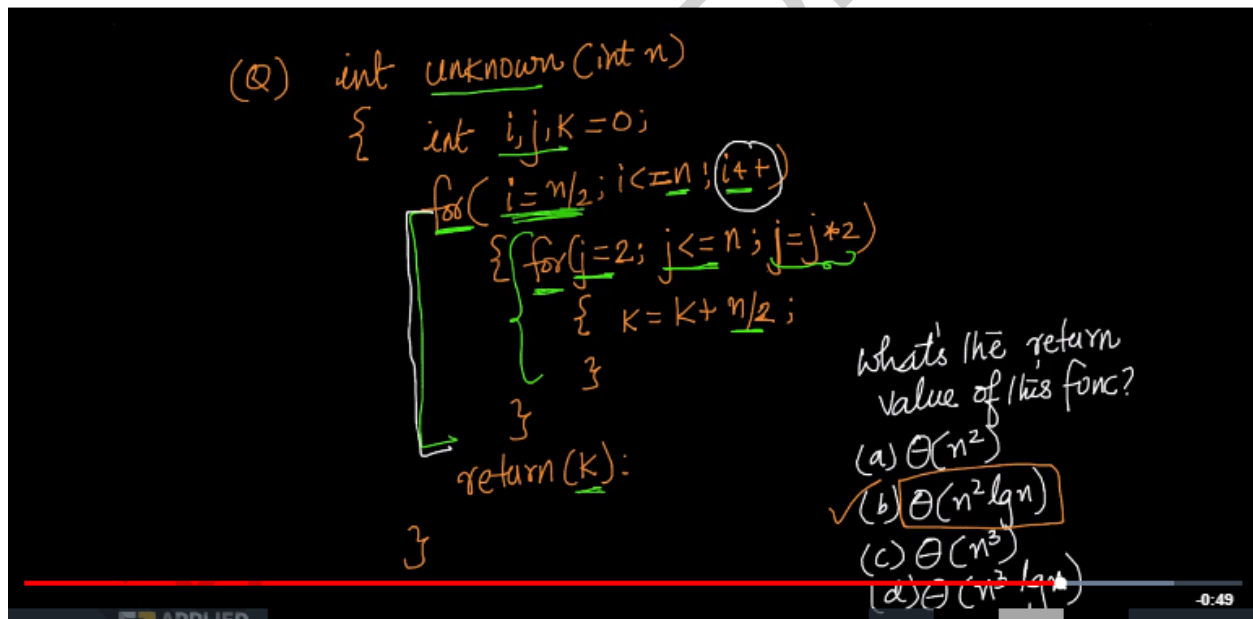 (Q) int unknown (int n)
{ int i, j, k = 0;
for( i = n/2; i <= n; i++)
{ for(j = 2; j <= n; j = j*2)
{ k = k + n/2;
}
}
return (k);
}
What's the return
value of this func?
(a) Θ(n²)
(b) Θ(n² lgn)
(c) Θ(n³)
(d) Θ(n³ lgn)
-0:49
APPLIED